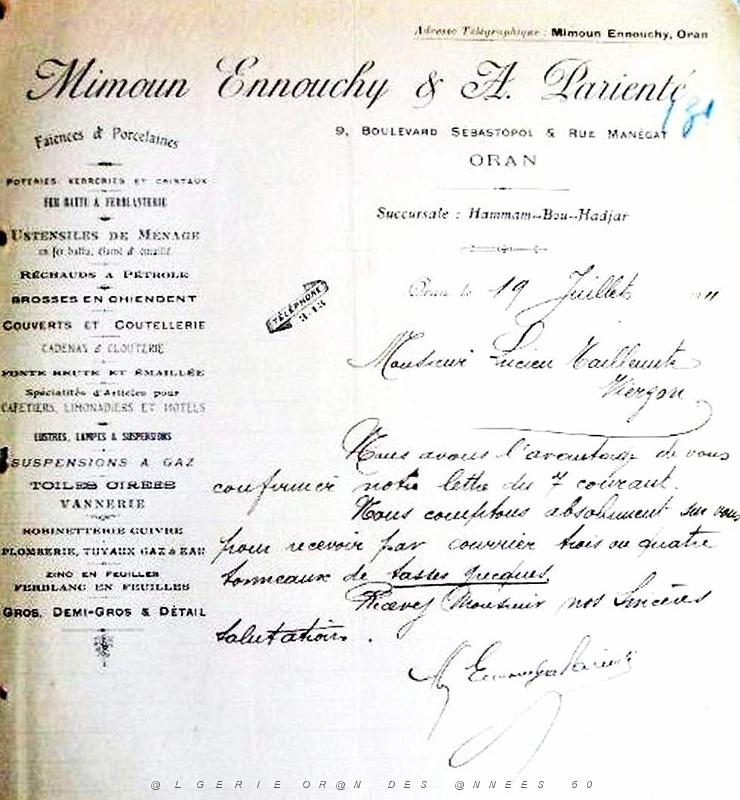 Adresse Télégraphique : Mimoun Ennouchy, Oran
Mimoun Ennouchy & A. Parienté
9, BOULEVARD SÉBASTOPOL & RUE MANÉGAT
ORAN
Succursale : Hammam-Bou-Hadjar
Faïences & Porcelaines
POTERIES, VERRERIES ET CRISTAUX
FER BATTU & FERBLANTERIE
USTENSILES DE MÉNAGE
en fer battu, étamé & émaillé
RÉCHAUDS A PÉTROLE
BROSSES EN CHIENDENT
COUVERTS ET COUTELLERIE
CADENAS & CLOUTERIE
FONTE BRUTE ET ÉMAILLÉE
Spécialités d'Articles pour
CAFETIERS, LIMONADIERS ET HOTELS
LUSTRES, LAMPES & SUSPENSIONS
SUSPENSIONS A GAZ
TOILES CIRÉES
VANNERIE
ROBINETTERIE CUIVRE
PLOMBERIE, TUYAUX GAZ & EAU
ZINC EN FEUILLES
FERBLANC EN FEUILLES
GROS, DEMI-GROS & DÉTAIL
TÉLÉPHONE
3-13
Oran le 19 Juillet 11
Monsieur Lucien Taillemite
Vierzon
Nous avons l'avantage de vous
confirmer notre lettre du 7 courant.
Nous comptons absolument sur vous
pour recevoir par courrier trois ou quatre
tonneaux de tasses grecques
Recevez Monsieur nos Sincères
Salutations.
@LGERIE OR@N DES @NNEES 50